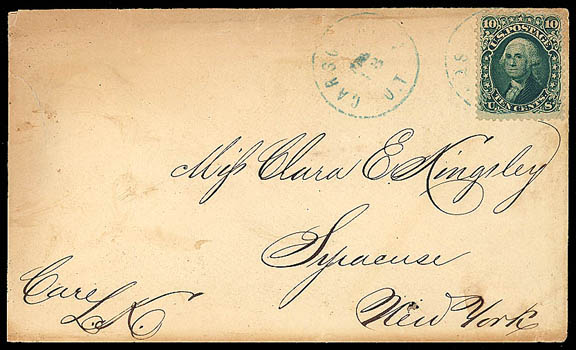 10 U.S. POSTAGE 10
TEN CENTS.
U S
CARSO
U.T.
Miss Clara E. Kingsley
Syracuse
New York
Care
L. K.